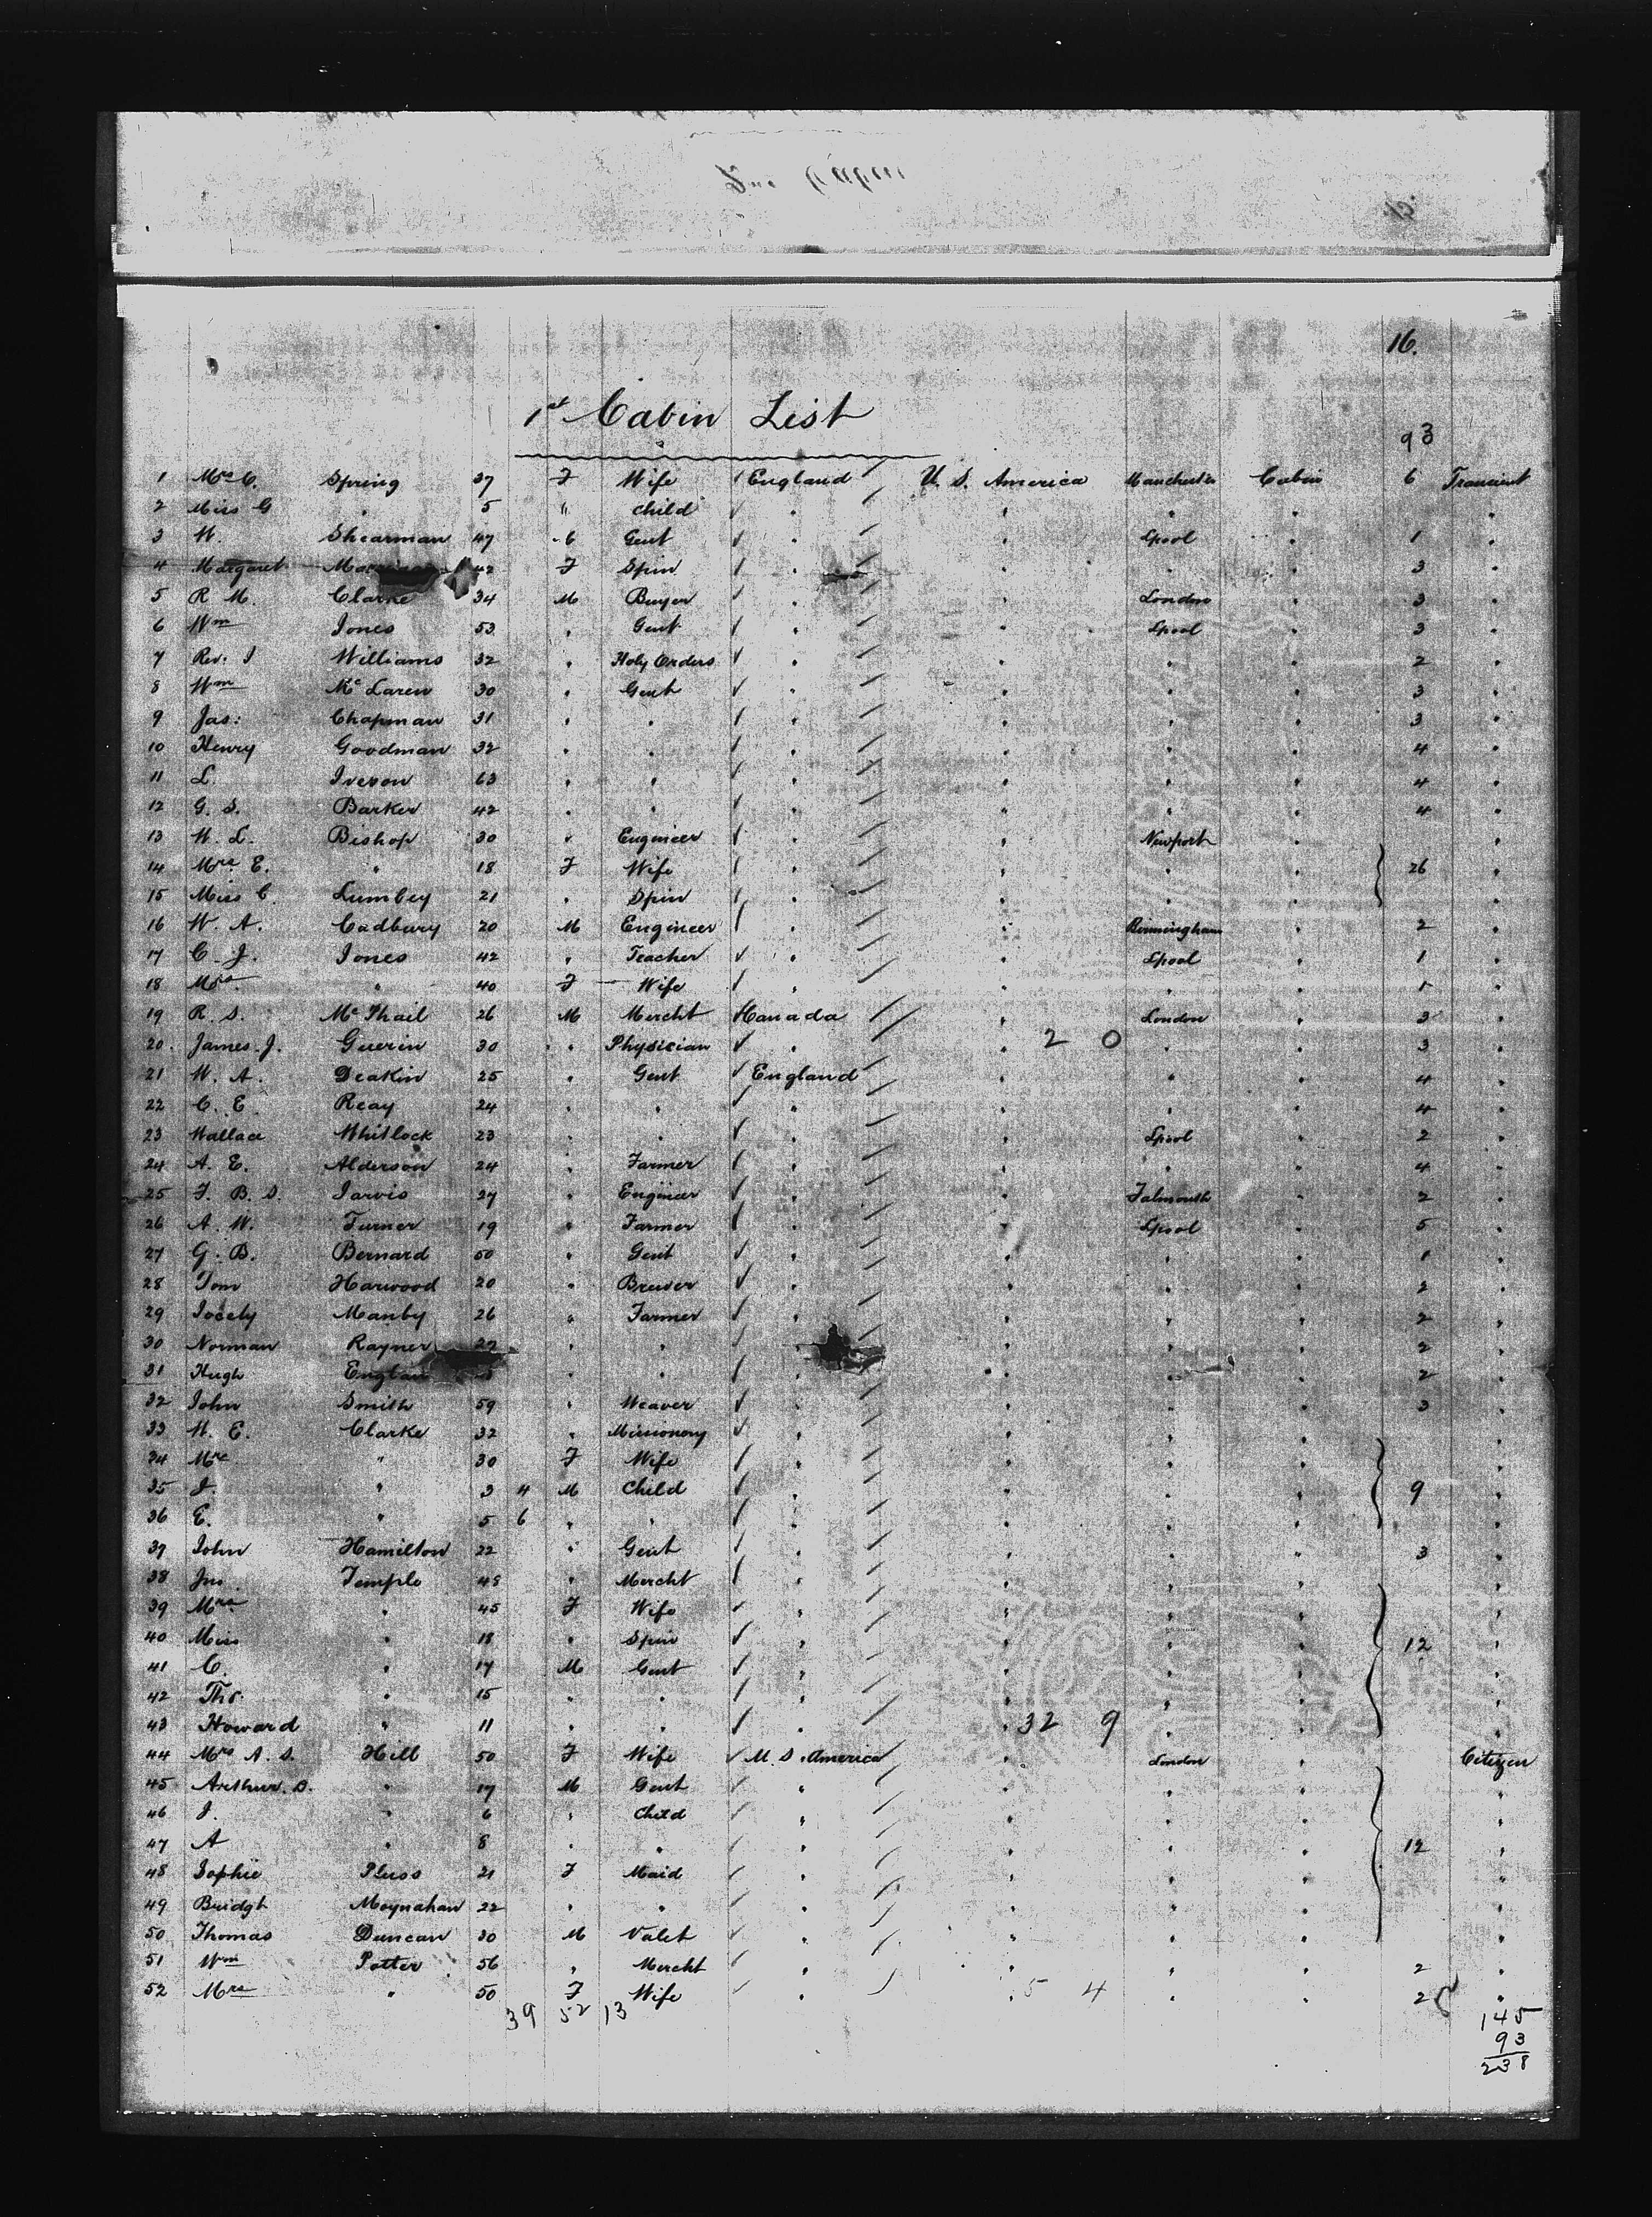 16.
1st Cabin List
93
1 Mrs C. Spring 37 F Wife England U. S. America Manchester Cabin 6 Transient
2 Miss G " 5 " child " " " " "
3 W. Shearman 47 Gent " " Lpool " 1 "
4 Margaret 42 F Spin " " " " 3 "
5 R M. Clarke 34 M Buyer " " London " 3 "
6 Wm Jones 53 " Gent " " Lpool " 3 "
7 Rev. J Williams 32 " Holy Orders " " " " 2 "
8 Wm McLaren 30 " Gent " " " " 3 "
9 Jas: Chapman 31 " " " " " " 3 "
10 Henry Goodman 32 " " " " " " 4 "
11 L. Iveson 63 " " " " " " 4 "
12 G. S. Barker 42 " " " " " " 4 "
13 W. L. Bishop 30 " Engineer " " Newport " "
14 Mrs E. " 18 F Wife " " " " 26 "
15 Miss C. Lumbey 21 " Spin " " " " "
16 W. A. Cadbury 20 M Engineer " " Birmingham " 2 "
17 C. J. Jones 42 " Teacher " " Lpool " 1 "
18 Mrs " 40 F Wife " " " " 1 "
19 R. S. McPhail 26 M Mercht Canada " London " 3 "
20. James. J. Guerin 30 " Physician " " 2 0 " " 3 "
21 W. A. Deakin 25 " Gent England " " " 4 "
22 C. E. Reay 24 " " " " " " 4 "
23 Wallace Whitlock 23 " " " " Lpool " 2 "
24 A. E. Alderson 24 " Farmer " " " " 4 "
25 F. B. S. Jarvis 27 " Engineer " " Falmouth " 2 "
26 A. W. Turner 19 " Farmer " " Lpool " 5 "
27 G. B. Bernard 50 " Gent " " " " 1 "
28 Tom Harwood 20 " Brewer " " " " 2 "
29 Jocely Manby 26 " Farmer " " " " 2 "
30 Norman Rayner " " " " " " 2 "
31 Hugh " " " " " " 2 "
32 John Smith 59 " Weaver " " " " 3 "
33 W. E. Clarke 32 " Missionary " " " " "
34 Mrs " 30 F Wife " " " " "
35 J. " 3 4 M Child " " " " 9 "
36 E. " 5 6 " " " " " " "
37 John Hamilton 22 " Gent " " " " 3 "
38 Jno Temple 48 " Mercht " " " " "
39 Mrs " 45 F Wife " " " " "
40 Miss " 18 " Spin " " " " 12 "
41 C. " 17 M Gent " " " " "
42 Thos. " 15 " " " " " " "
43 Howard " 11 " " " " 32 9 " " "
44 Mrs A. S. Hill 50 F Wife U. S. America " London " Citizen
45 Arthur. B. " 17 M Gent " " " " "
46 J. " 6 " Child " " " " "
47 A " 8 " " " " " " 12 "
48 Sophie Pluss 21 F Maid " " " " "
49 Bridgt Moynahan 22 " " " " " " "
50 Thomas Duncan 30 M Valet " " " " "
51 Wm Potter 56 " Mercht " " " " 2 "
52 Mrs " 50 F Wife " " 5 4 " " 2 "
39 52 13
145
93
238